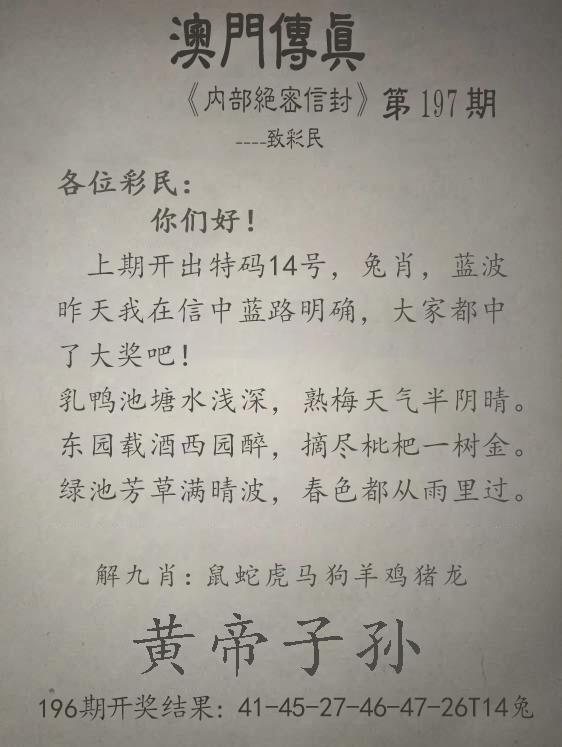 澳門傳眞
《内部絕密信封》第197期
----致彩民
各位彩民：
你们好！
上期开出特码14号，兔肖，蓝波
昨天我在信中蓝路明确，大家都中
了大奖吧！
乳鸭池塘水浅深，熟梅天气半阴晴。
东园载酒西园醉，摘尽枇杷一树金。
绿池芳草满晴波，春色都从雨里过。
解九肖：鼠蛇虎马狗羊鸡猪龙
黄帝子孙
196期开奖结果：41-45-27-46-47-26T14兔